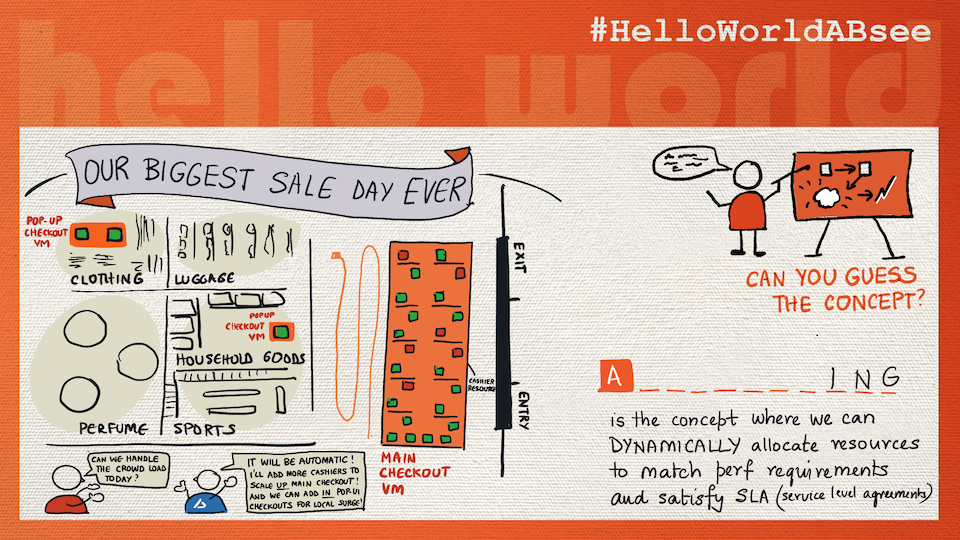 hello world
#HelloWorldABsee
OUR BIGGEST SALE DAY EVER
POP-UP
CHECKOUT
VM
CLOTHING
LUGGAGE
POPUP
CHECKOUT
VM
HOUSEHOLD GOODS
PERFUME
SPORTS
EXIT
CASHIER
RESOURCE
ENTRY
MAIN
CHECKOUT
VM
CAN WE HANDLE
THE CROWD LOAD
TODAY?
IT WILL BE AUTOMATIC!
I'LL ADD MORE CASHIERS TO
SCALE UP MAIN CHECKOUT!
AND WE CAN ADD IN POP-UP
CHECKOUTS FOR LOCAL SURGE!
CAN YOU GUESS
THE CONCEPT?
A _ _ _ _ _ _ _ I N G
is the concept where we can
DYNAMICALLY allocate resources
to match perf requirements
and satisfy SLA (service level agreements)